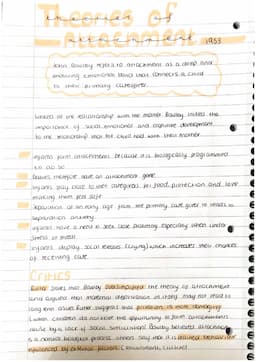 Theories of
Attachment
1953
John Bowlby refers to attachment as a deep and
enduring emotional bond that connects a child
to their primary caregiver.
looked at the relationship with the mother. Bowlby linked the
importance of social, emotional and cognitive development
to the relationship that the child had with their mother.
Infants form attachment because it is biologically programmed
to do so.
Babies have an attachment gene
Infants stay close to their caregiver for food, protection and love
making them feel safe
Separation at an early age from the primary care giver it leads to
separation anxiety.
Infants have a need to seek close proximity especially when under
stress or threat
Infants display social releases (crying) which increases their chances
of receiving care.
Critics
Rutter says that Bowlby oversimplified the theory of attachment
and argued that maternal deprivation at infancy may not lead to
long term issues. Rutter suggests that privation is more damaging
(when children do not have the opportunity to form attachments
cause by a lack of social stimulation). Bowlby believes attachment
is a gradual biological process. Others say that it is learned behaviour
influenced by external factors